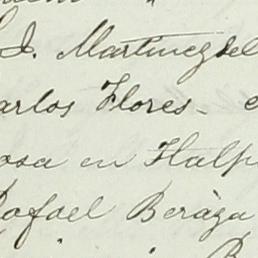 J. Martinez del
arlos Flores - e
osa en Halp
Rafael Beraza